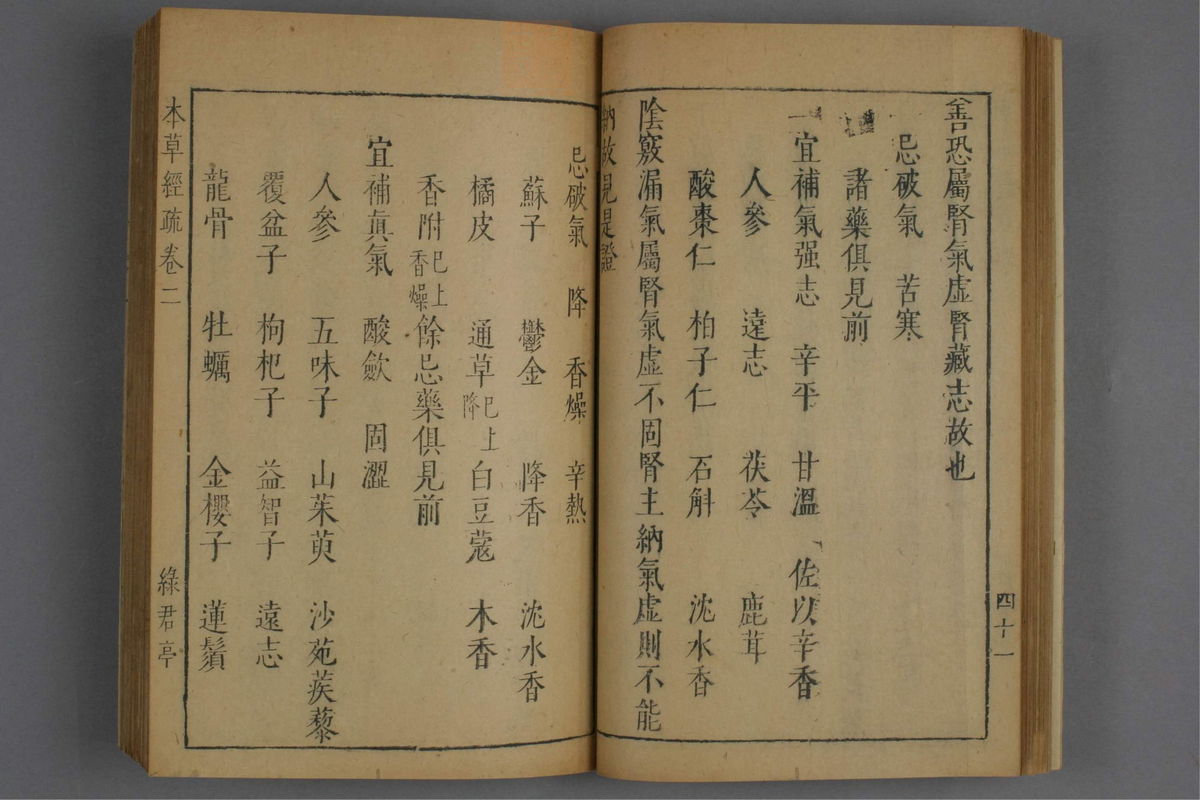 善恐屬腎氣虛腎藏志故也
忌破氣　苦寒
諸藥俱見前
宜補氣强志　辛平　甘溫　佐以辛香
人參　遠志　茯苓　鹿茸
酸棗仁　柏子仁　石斛　沈水香
陰竅漏氣屬腎氣虛不固腎主納氣虛則不能
納故見是證
四十一
忌破氣　降　香燥　辛熱
蘇子　鬱金　降香　沈水香
橘皮　通草已上降　白豆蔻　木香
香附已上香燥餘忌藥俱見前
宜補眞氣　酸斂　固澀
人參　五味子　山茱萸　沙苑蒺藜
覆盆子　枸杞子　益智子　遠志
龍骨　牡蠣　金櫻子　蓮鬚
本草經疏卷二　綠君亭